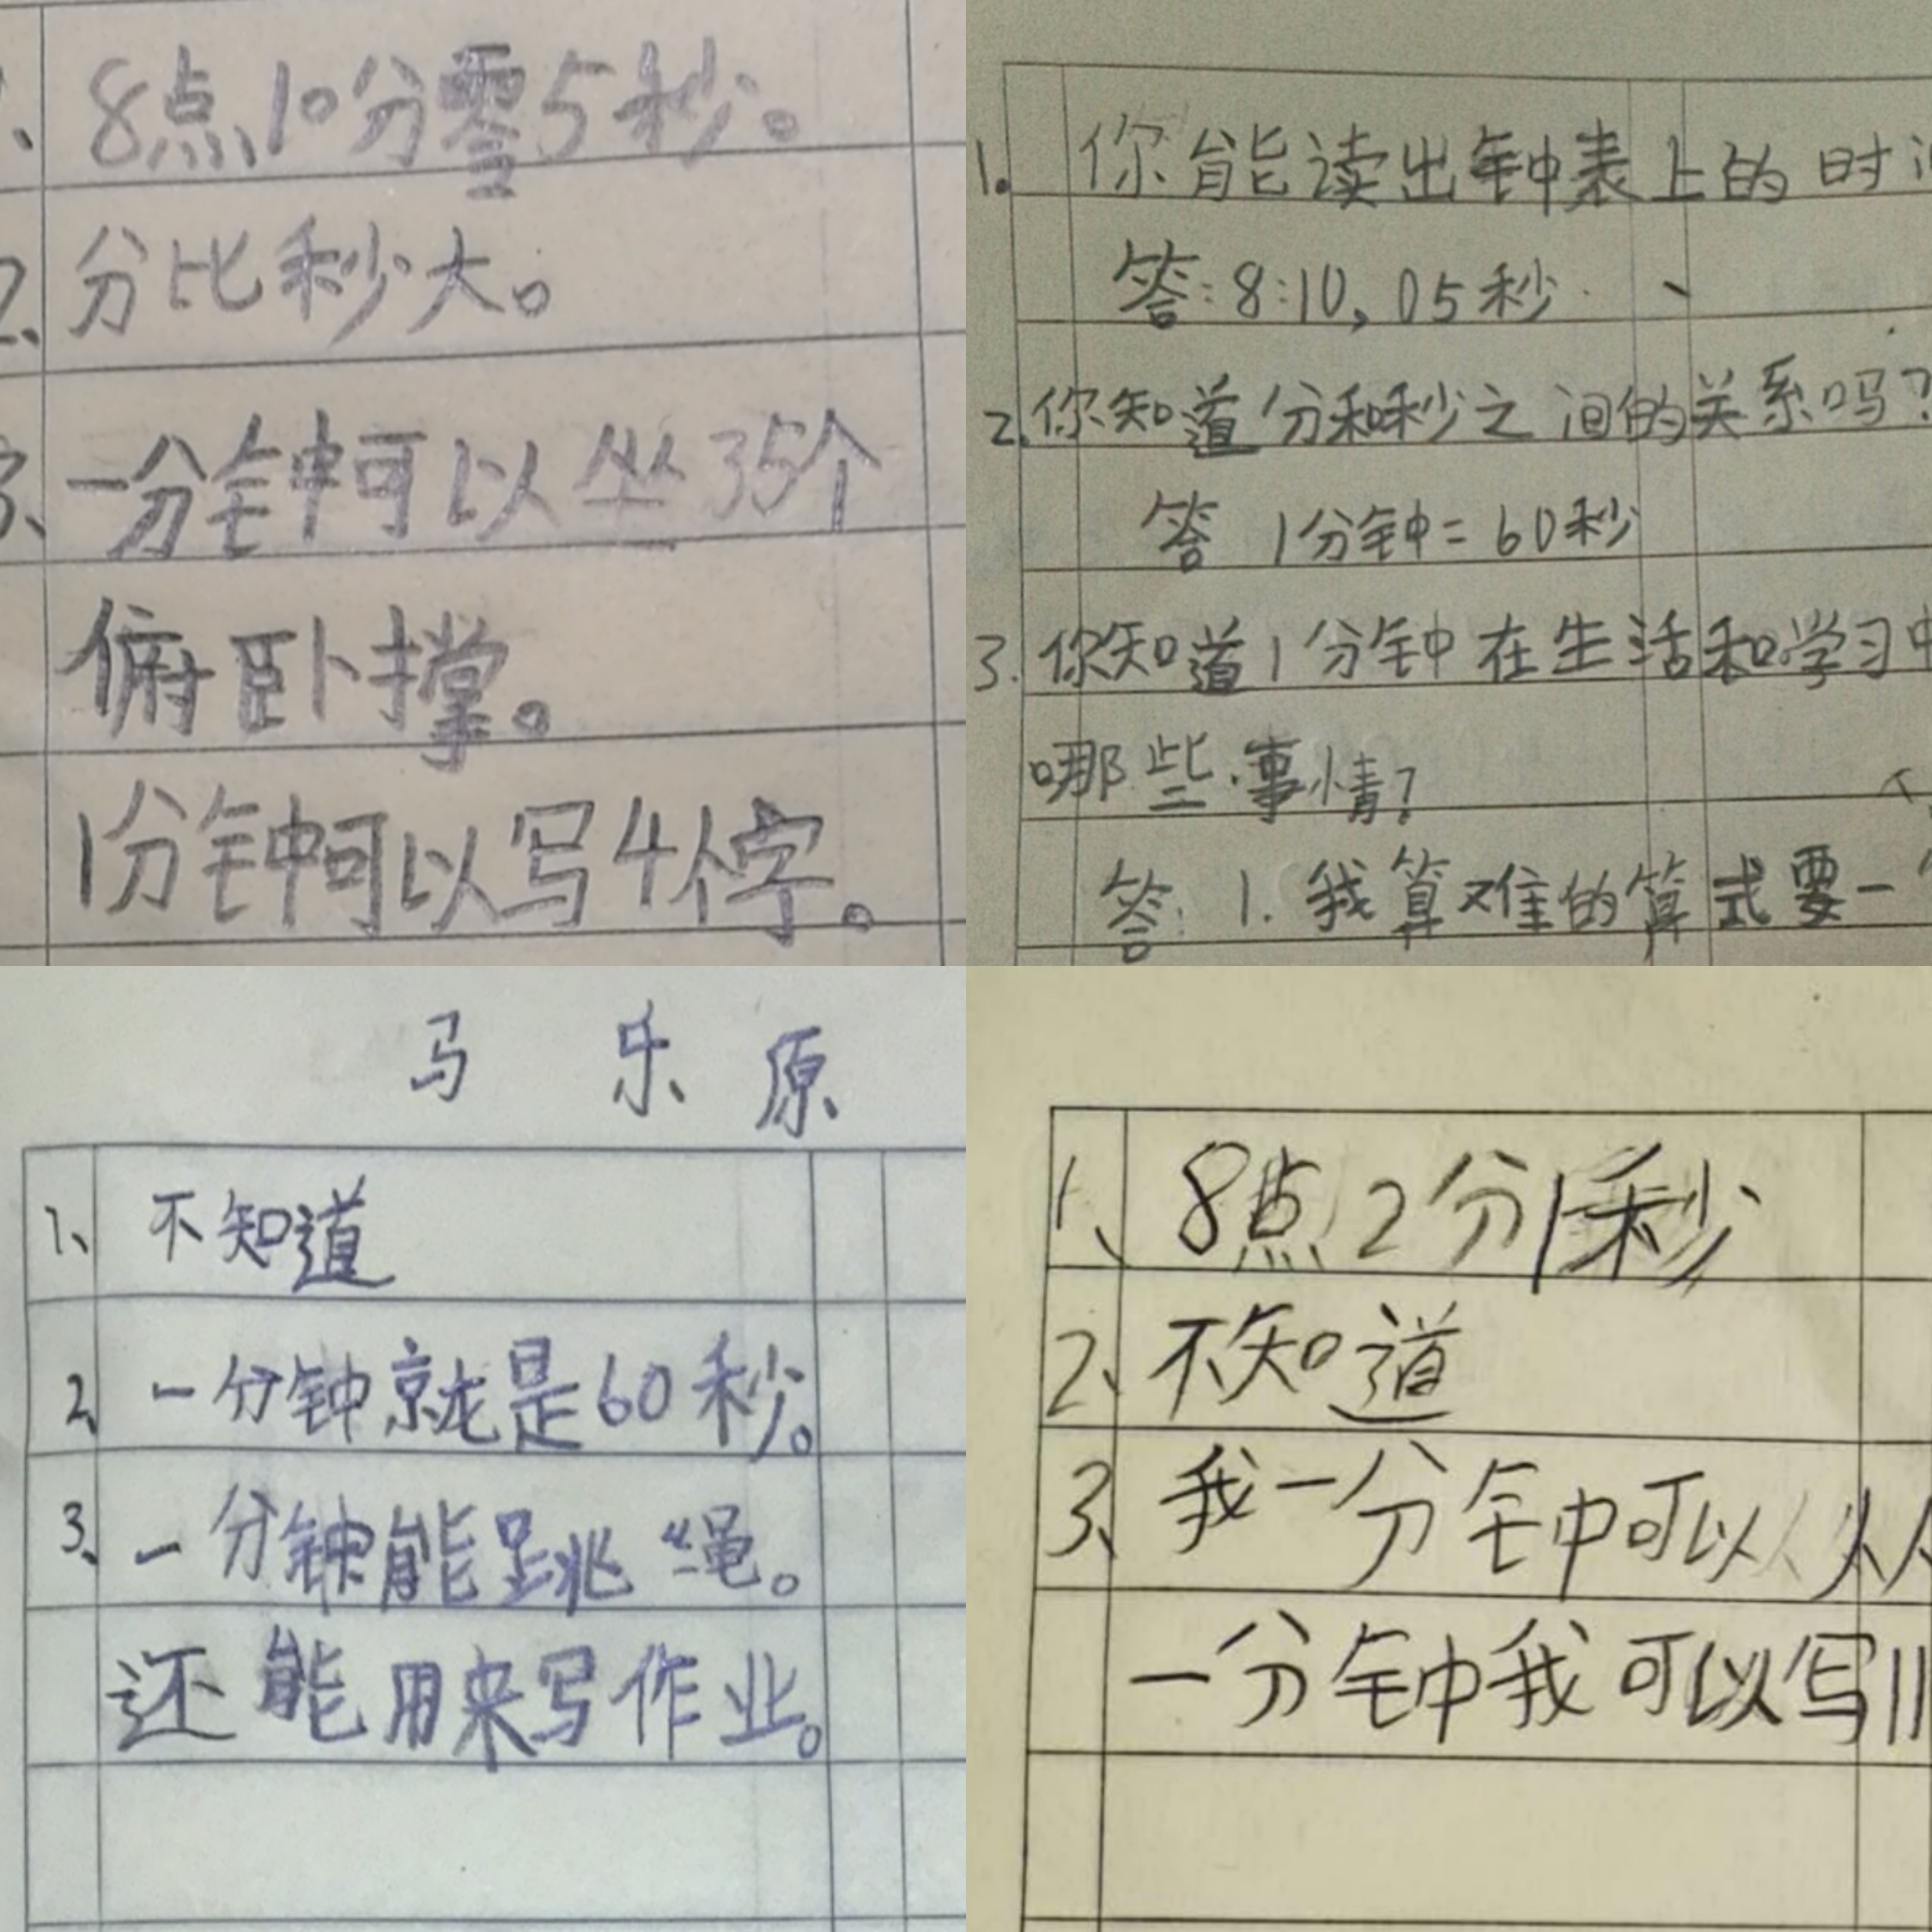 1、8点10分零5秒。
2、分比秒大。
3、一分钟可以坐35个
俯卧撑。
1分钟可以写4个字。
1. 你能读出钟表上的时
答:8:10,05秒
2.你知道分和秒之间的关系吗?
答 1分钟=60秒
3.你知道1分钟在生活和学习中
哪些事情?
答:1.我算难的算式要一
马乐原
1、不知道
2、一分钟就是60秒。
3、一分钟能跳绳。
还能用来写作业。
1、8点2分1秒
2、不知道
3、我一分钟可以从
一分钟我可以写